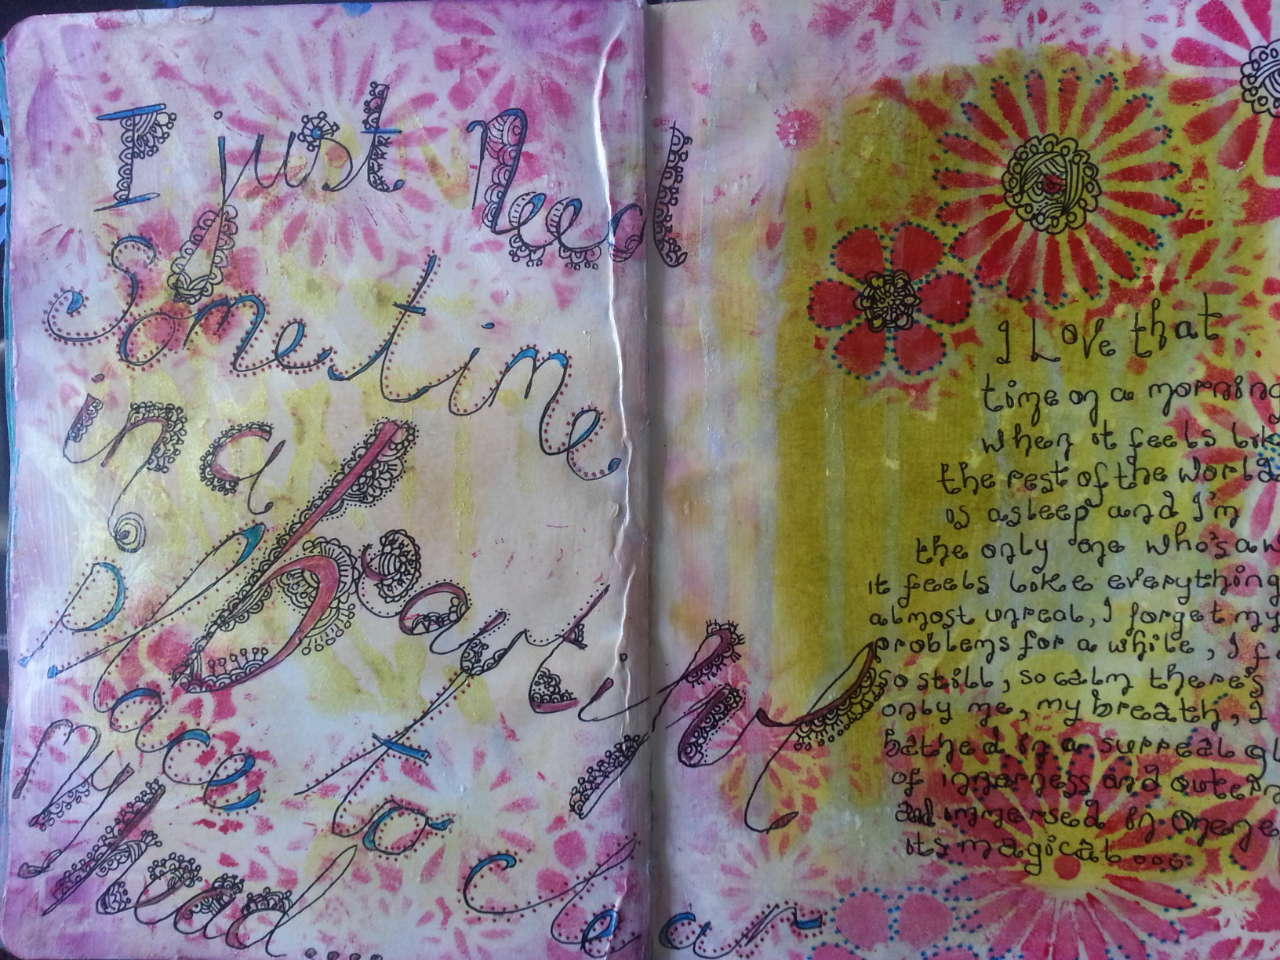 I just Need
Sometime
in a
Beautiful
place to clear
my
head....
I Love that
time on a morning
when it feels like
the rest of the world
is asleep and I'm
the only one who's aw
it feels like everything
almost unreal, I forget my
problems for a while, I f
so still, so calm there's
only me, my breath, I
bathed in a surreal gl
of innerness and outern
and immersed in
its magical....